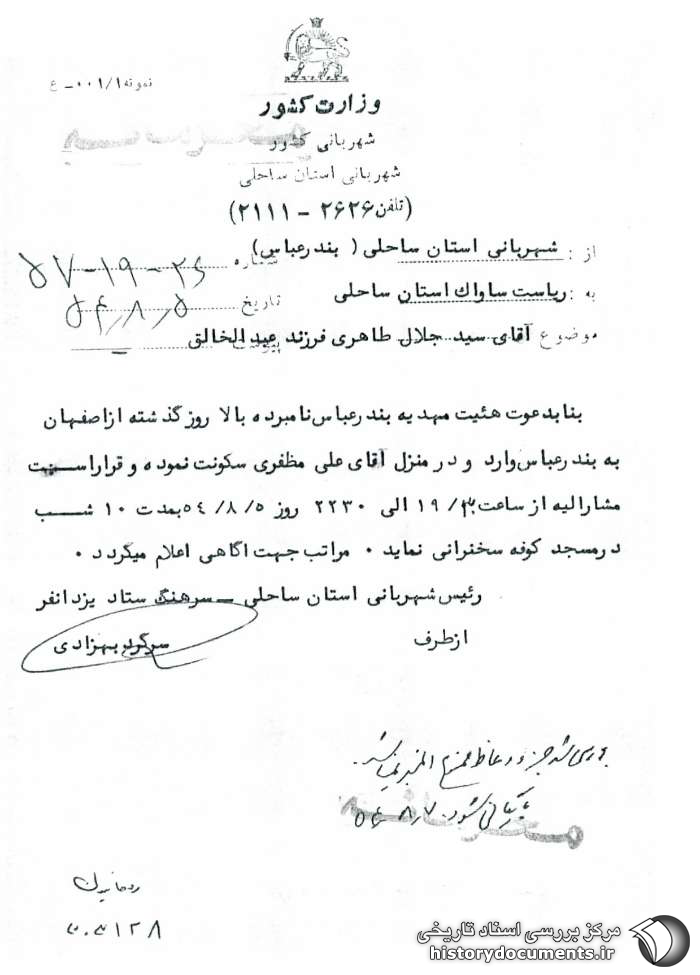 نمونه ۰۰۱/۱ – ع
وزارت کشور
شهربانی کشور
شهربانی استان ساحلی
(تلفن ۲۶۲۶ – ۲۱۱۱)
از : شهربانی استان ساحلی ( بندرعباس)
شماره ۲۶ – ۱۹ – ۵۷
به : ریاست ساواک استان ساحلی
تاریخ ۵۴٫۸٫۵
موضوع آقای سید جلال طاهری فرزند عبدالخالق
پیوست
بنا بدعوت هئیت مهدیه بندرعباس نامبرده بالا روز گذشته از اصفهان
به بندرعباس وارد و در منزل آقای علی مظفری سکونت نموده و قرار است
مشارالیه از ساعت ۱۹/۳۰ الی ۲۲۳۰ روز ۵۴/۸/۵ بمدت ۱۰ شب
در مسجد کوفه سخنرانی نماید ۰ مراتب جهت آگاهی اعلام میگردد ۰
رئیس شهربانی استان ساحلی – سرهنگ ستاد یزدانفر
از طرف
سرگرد بهزادی
بررسی شد جزو وعاظ ممنوع المنبر نمیباشد.
بایگانی شود. ۵۴٫۸٫۷
۱۲۸
مرکز بررسی اسناد تاریخی
historydocuments.ir